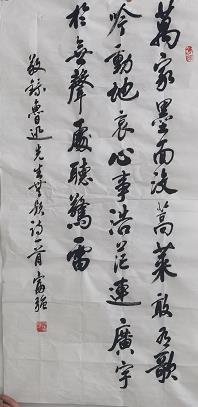 萬家墨面沒蒿萊敢有歌
吟動地哀心事浩茫連廣宇
於無聲處聽驚雷
敬錄魯迅先生無題詩一首